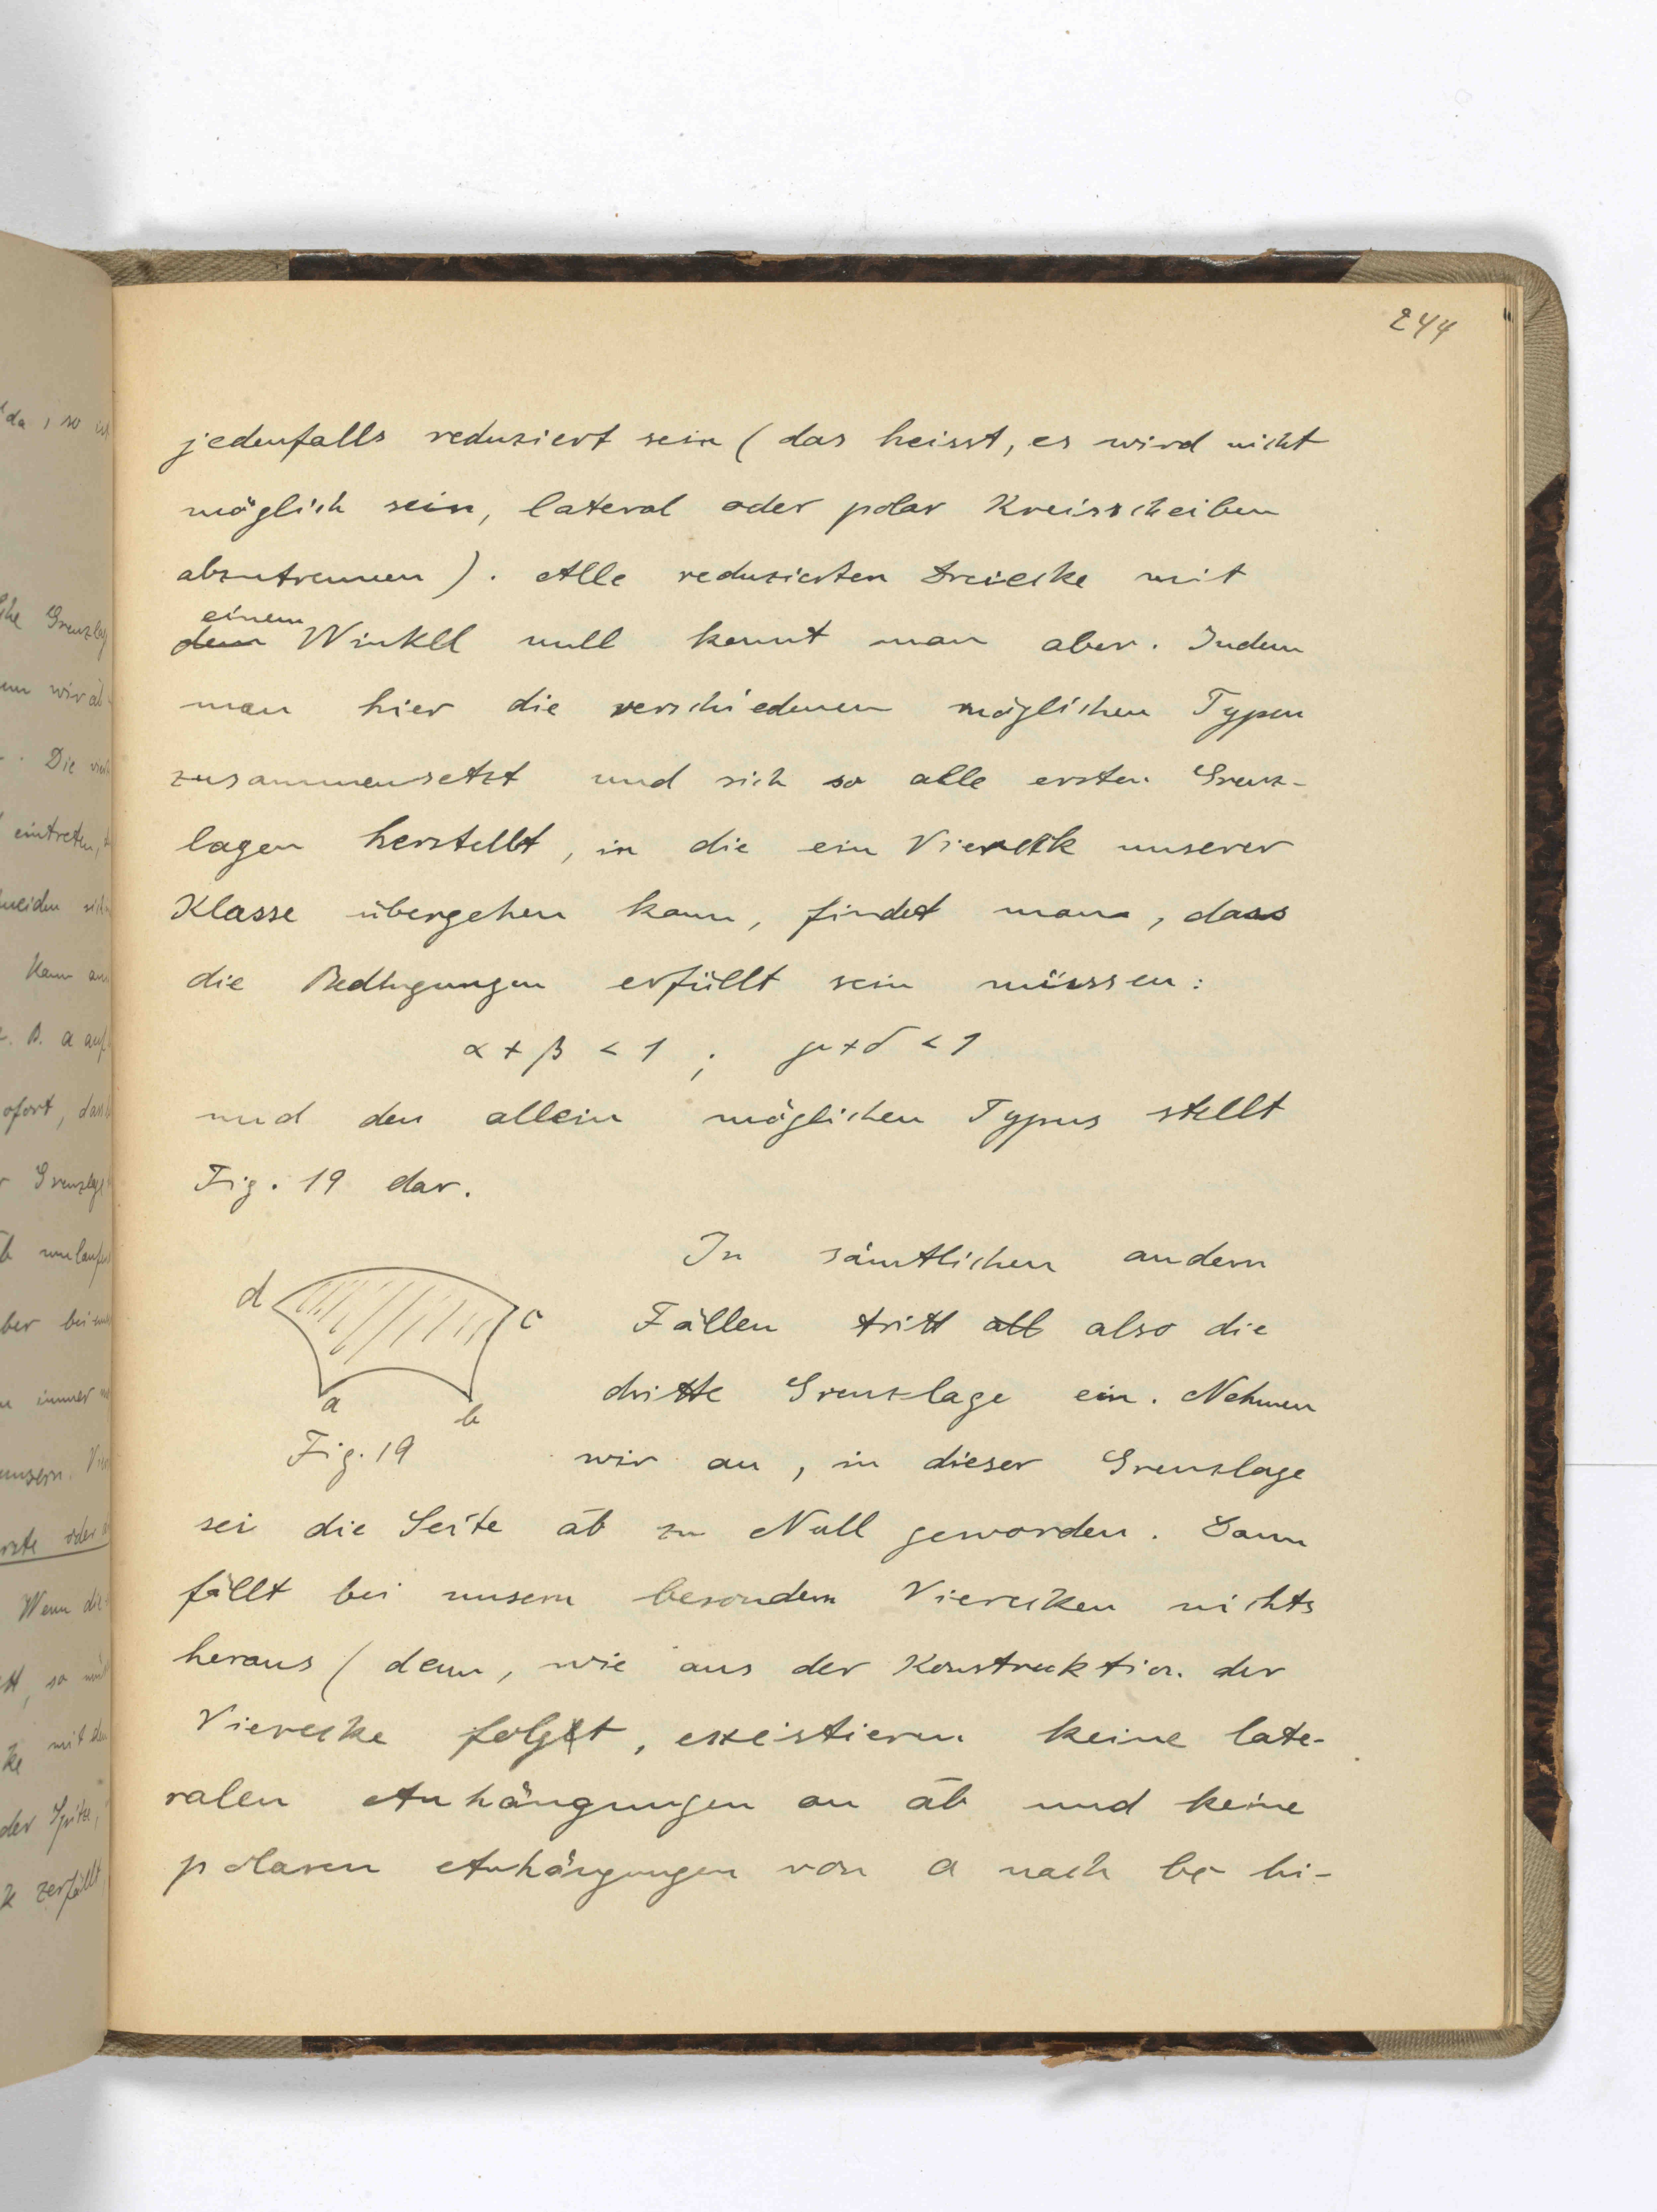 244
jedenfalls reduziert sein (das heisst, es wird nicht
möglich sein, lateral oder polar Kreisscheiben
abzutrennen). Alle reduzierten Dreiecke mit
einem
dem Winkel null kennt man aber. Indem
man hier die verschiedenen möglichen Typen
zusammensetzt und sich so alle ersten Grenz-
lagen herstellt, in die ein Viereck unserer
Klasse übergehen kann, findet man, dass
die Bedingungen erfüllt sein müssen:
α + β < 1 ; γ + δ < 1
und den allein möglichen Typus stellt
Fig. 19 dar.
In sämtlichen andern
d
c
Fällen tritt all also die
dritte Grenzlage ein. Nehmen
a
b
Fig. 19
wir an, in dieser Grenzlage
sei die Seite a͞b zu Null geworden. Dann
fällt bei unsern besondern Vierecken nichts
heraus (denn, wie aus der Konstruktion der
Vierecke folgt, existieren keine late-
ralen Anhängungen an a͞b und keine
polaren Anhängungen von a nach bc hi-
da, so
Grenzlag
wir
Die
eintreten,
kann
B. a auf
ofort, dass
Grenzlage
umlaufen
ber bei
immer
unsern
rste oder
Wenn die
so
mit
der Spitze,
zerfällt